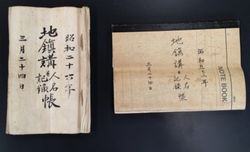 昭和二十六年
地鎮講
人名帳
記録
三月二十四日
昭和五十八年
地鎮講
人名帳
記録
三月二十四日
NOTE BOOK